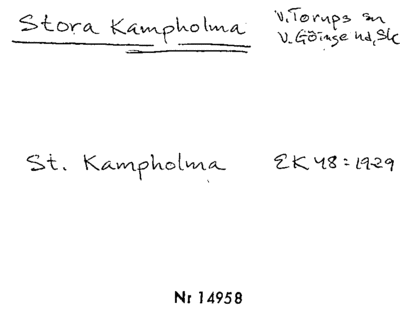 Stora Kampholma
V. Torups sn
V. Göinge hd, Sk
St. Kampholma
EK 48 : 1929
Nr 14958